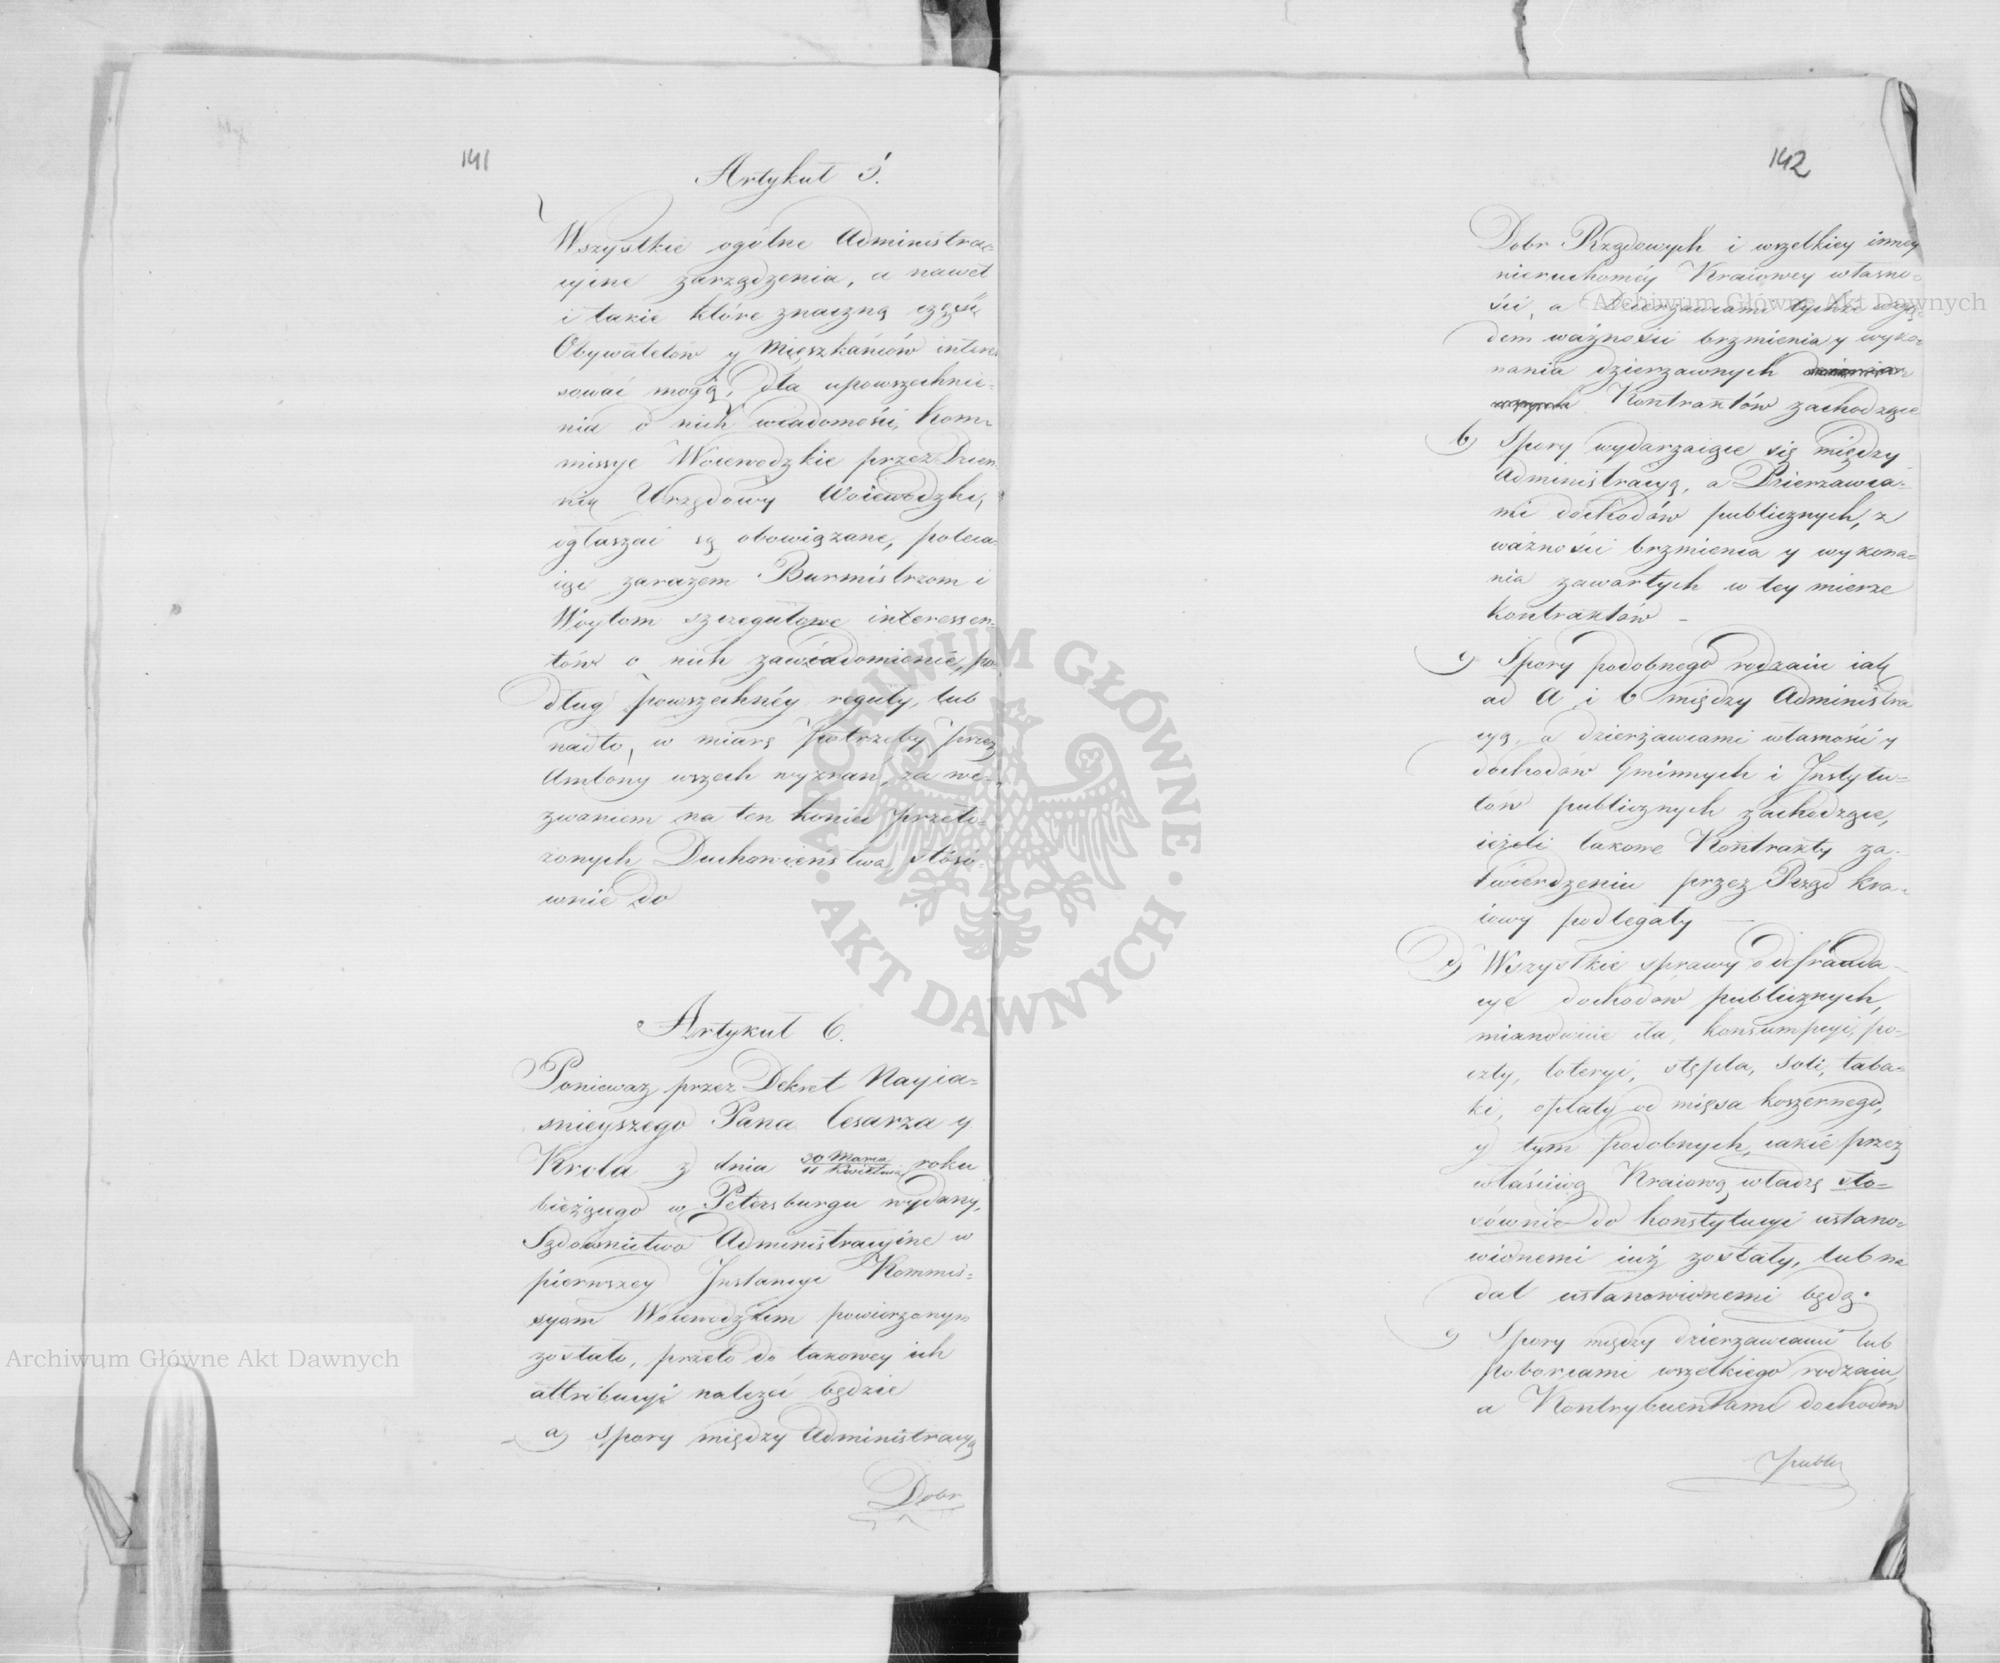 141
Artykuł 5.
Wszystkie ogólne Administrac-
cyine zarządzenia, a nawet
i takie które znaczną część
Obywatelów y Mieszkańców intere-
sować mogą, dla upowszechnie-
nia o nich wiadomości, Kom-
missye Woiewodzkie przez Dzien-
nik Urzędowy Woiewodzki,
ogłaszać są obowiązane, poleca-
iąc zarazem Burmistrzom i
Wóytom szczegułowe interessen-
tów o nich zawiadomienie, po-
dług powszechnéy reguły, lub
nadto, w miarę potrzeby przez
Ambony wszech wyznań, za we-
zwaniem na ten koniec przeło-
żonych Duchowieństwa, stóso-
wnie do
Artykuł 6.
Ponieważ przez Dekret Nayia-
śnieyszego Pana Cesarza y
Króla z dnia 30 Marca / 11 Kwietnia roku
bieżącego w Petersburgu wydany,
Sądownictwo Administracyine w
pierwszey Instancyi Kommis-
syom Woiewodzkim powierzonym
zostało, przeto do takowey ich
attribucyi należeć będzie
a) Spory między Administracyą
Dobr
142
Dobr Rządowych i wszelkiey inney
nieruchoméy Kraiowey własno-
ści, a Dzierzawcami tychże wzglę-
dem ważności brzmienia y wyko-
nania dzierzawnych
Kontraktów zachodzące
b) Spory wydarzaiące się między
Administracyą, a Dzierzawca-
mi dochodów publicznych, z
ważności brzmienia y wykona-
nia zawartych w tey mierze
kontraktów –
c) Spory podobnego rodzaiu iak
ad A i b między Administra
cyą, a dzierżawcami własność y
dochodów Gminnych i Instytu-
tów publicznych zachodzące,
ieżeli takowe Kontrakty za-
twierdzeniu przez Rząd kra-
iowy podlegały –
d) Wszystkie sprawy o defrauda-
cye dochodów publicznych,
mianowicie cła, konsumpcyi, po-
czty, loteryi, stępla, soli, taba-
ki, opłaty od mięsa koszernego,
y tym podobnych, iakie przez
właściwą Kraiową władzę sto-
sównie do konstytucyi ustano-
wionemi iuż zostały, lub na
dal ustanowionemi będą.
e) Spory między dzierzawcami lub
poborcami wszelkiego rodzaiu,
a Kontrybuentami dochodów
publi
Archiwum Główne Akt Dawnych
Archiwum Główne Akt Dawnych
ARCHIWUM GŁÓWNE · AKT DAWNYCH ·